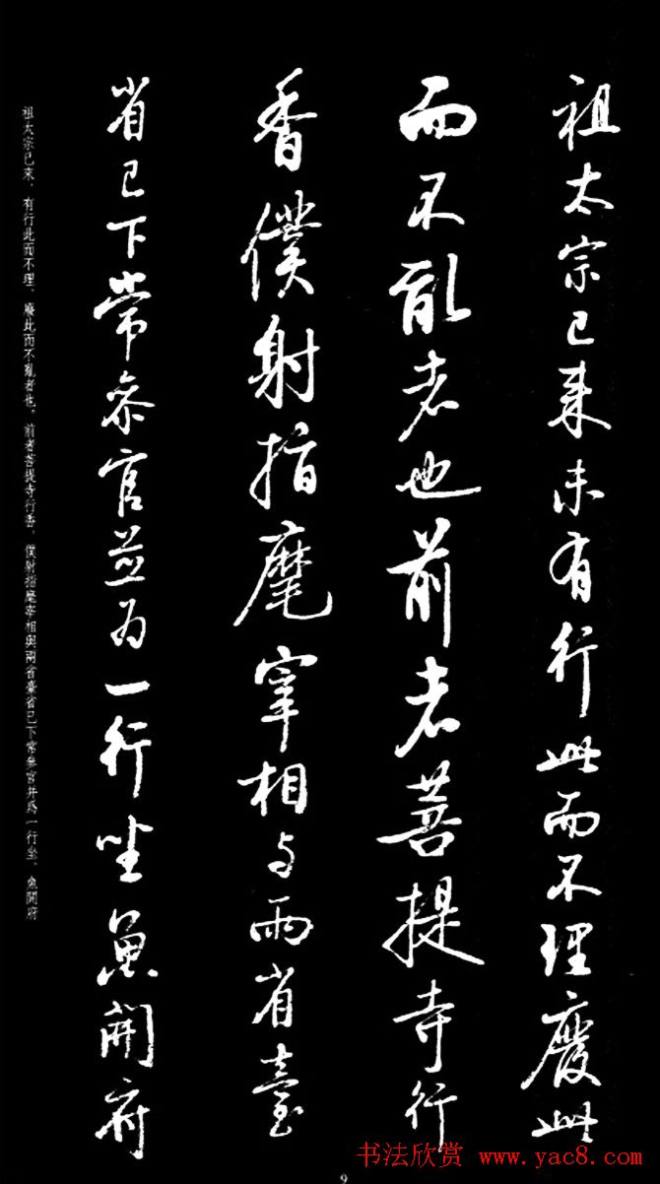 祖太宗已来未有行此而不理廢此
而不亂者也前者菩提寺行
香僕射指麾宰相与兩省臺
省已下常參官並為一行坐魚開府
祖太宗已來，有行此而不理，廢此而不亂者也。前者菩提寺行香，僕射指麾宰相與兩省臺省已下常參官并為一行坐，魚開府
书法欣赏 www.yac8.com
9